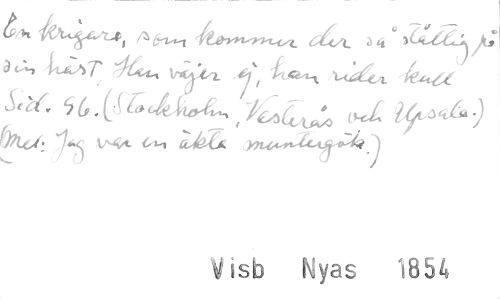 En krigare, som kommer der så ståttlig på
sin häst, Han väjer ej, han rider kull
Sid. 96. (Stockholm, Vesterås och Upsala.)
(Mel: Jag var en äkta muntergök.)
Visb Nyas 1854